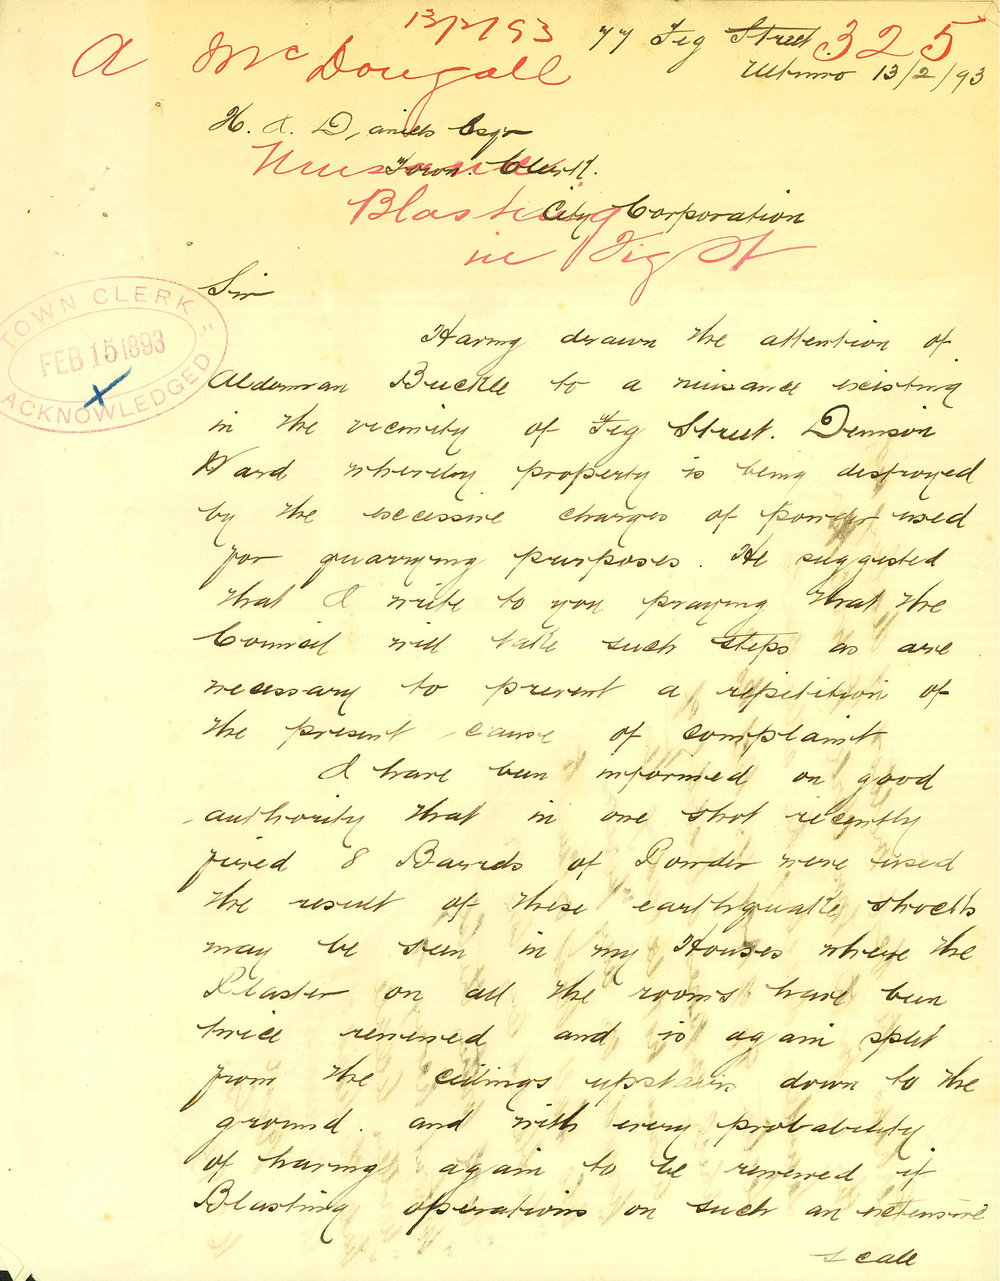 13/2/93
77 Fig Street. 325
A McDougall
Ultimo 13/2/93
H. J. Daniels Esqr
Nuisance
Town Clerk.
Blasting
City Corporation
in Fig St
Sir
TOWN CLERK
FEB 15 1893
ACKNOWLEDGED
Having drawn the attention of
Alderman Buckle to a nuisance existing
in the vicinity of Fig Street. Denison
Ward whereby property is being destroyed
by the excessive charges of powder used
for quarrying purposes. He suggested
that I write to you praying that the
Council will take such steps as are
necessary to prevent a repitition of
the present cause of complaint
I have been informed on good
authority that in one shot recently
fired 8 Barrels of Powder were used
the result of these earthquake shocks
may be seen in my Houses where the
Plaster on all the rooms have been
twice renewed and is again split
from the ceilings upstairs down to the
ground. and with every probability
of having again to be renewed if
Blasting operations on such an extensive
scale